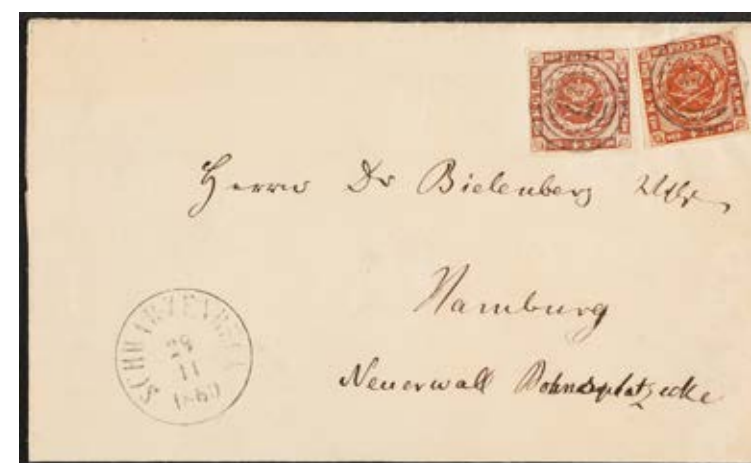 Herrn Dr Bielenberg Wlhr
Hamburg
Neuerwall Bohnsplatzecke
SCHWARZENBECK
29
11
1860